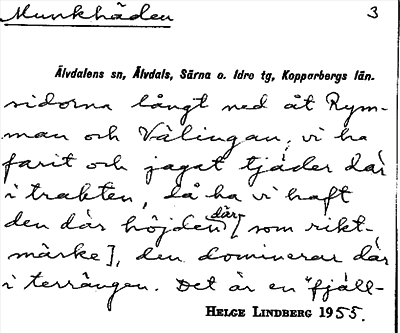 Munkhåden 3
Älvdalens sn, Älvdals, Särna o. Idre tg, Kopparbergs län.
sidorna långt ned åt Rym-
man och Vålingan; vi ha
farit och jagat tjäder där
i trakten, då ha vi haft
den där höjden där [som rikt-
märke], den dominerar där
i terrängen. Det är en "fjäll-
HELGE LINDBERG 1955.